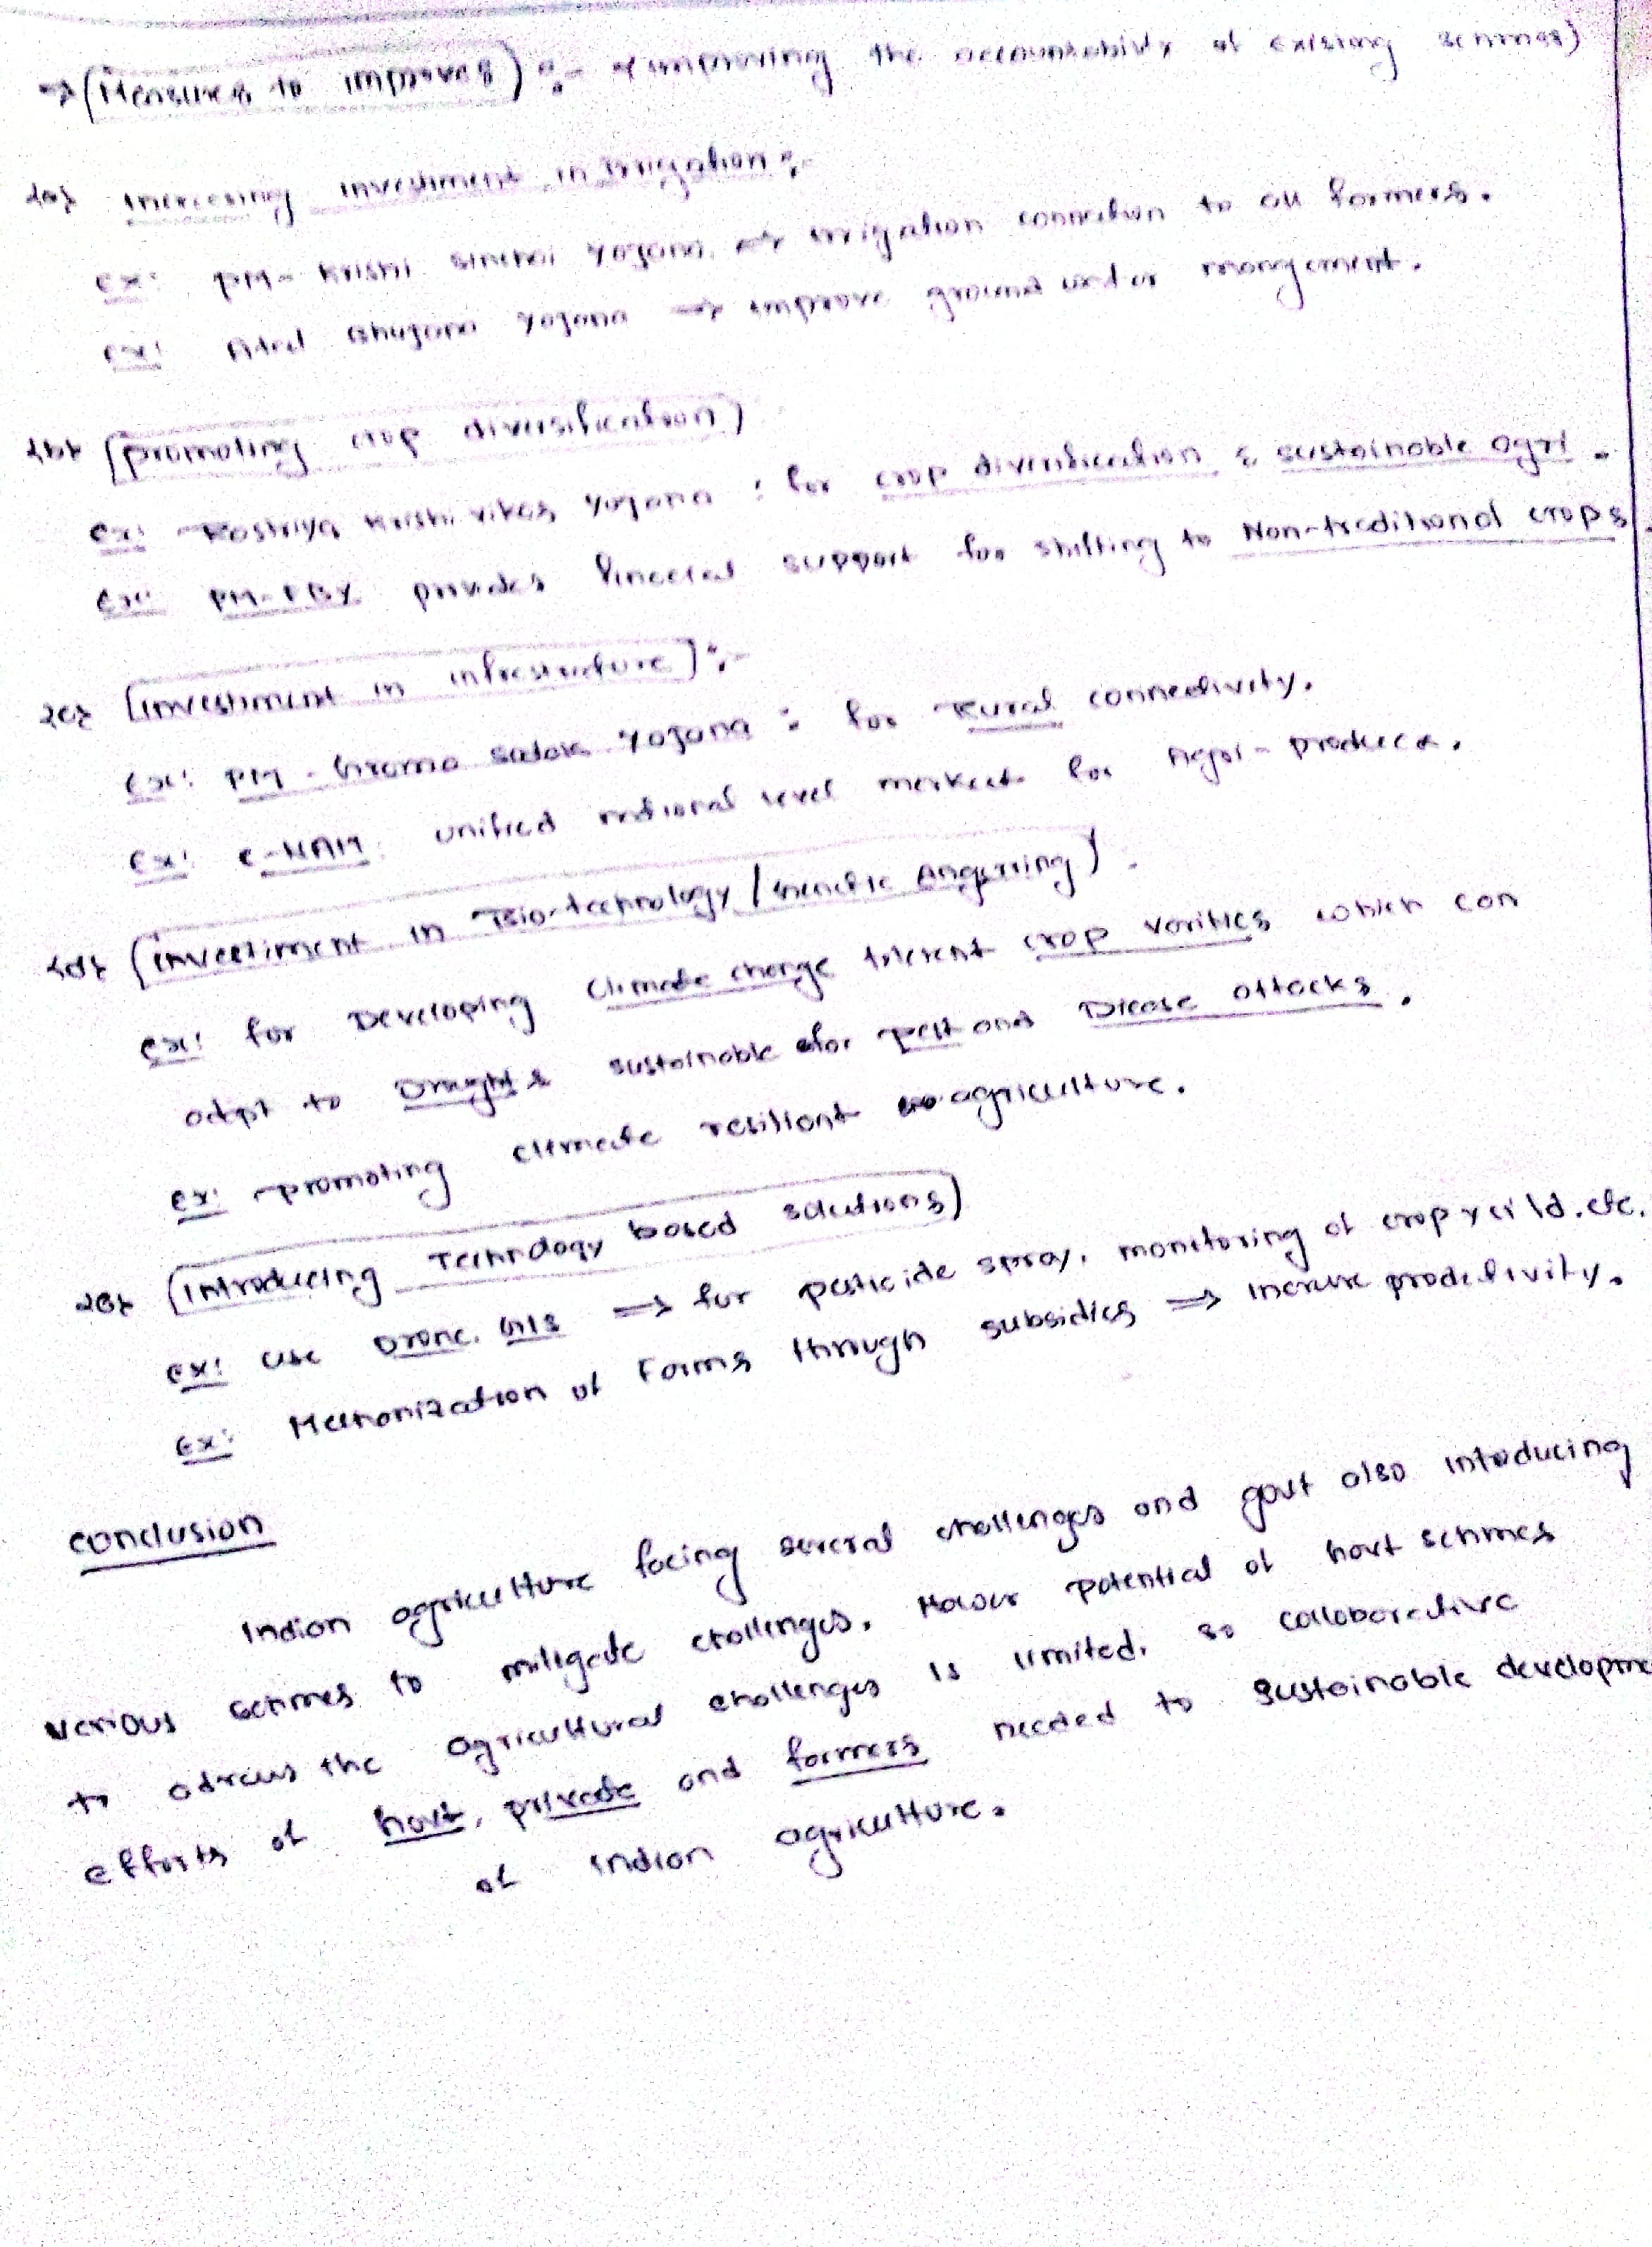 → (Measures to improves) :- improving the accountability of existing schmes)
<a> Increasing investment in Irrigation :-
Ex: PM- Krishi Sinchai Yojana → irrigation connection to all farmers.
Ex: Atal Bhujana Yojana → improve ground water mangement.
<b> (promoting crop diversification)
Ex: Rastriya Krishi vikas Yojana : for crop diversification & sustainable agri.
Ex: PM-FBY provides finacial support for shifting to Non-traditional crops.
<c> [investment in infrastructure] :-
Ex: PM - Grama sadak Yojana : for Rural connectivity.
Ex: e-NAM: unified national level market for Agri-produce.
<d> (investiment in Bio-technology / Genetic Angerring)
Ex: for Developing Climate change tolerent crop varities which can
adapt to Draught & sustainable for pest and Diease attacks.
Ex: promoting climate resiliant agriculture.
<e> (Introducing Technology based solutions)
Ex: use Drone, GIS ⇒ for pesticide spray, monitoring of crop yeild. etc.
Ex: Mechanization of Farms through subsidies ⇒ Increase productivity.
conclusion
Indian agriculture facing several challenges and govt also intoducing
various schmes to mitigate challenges. However potential of Govt schmes
to adress the agricultural challenges is limited. so colloborative
efforts of Govt, private and farmers needed to sustainable developme
of Indian agriculture.